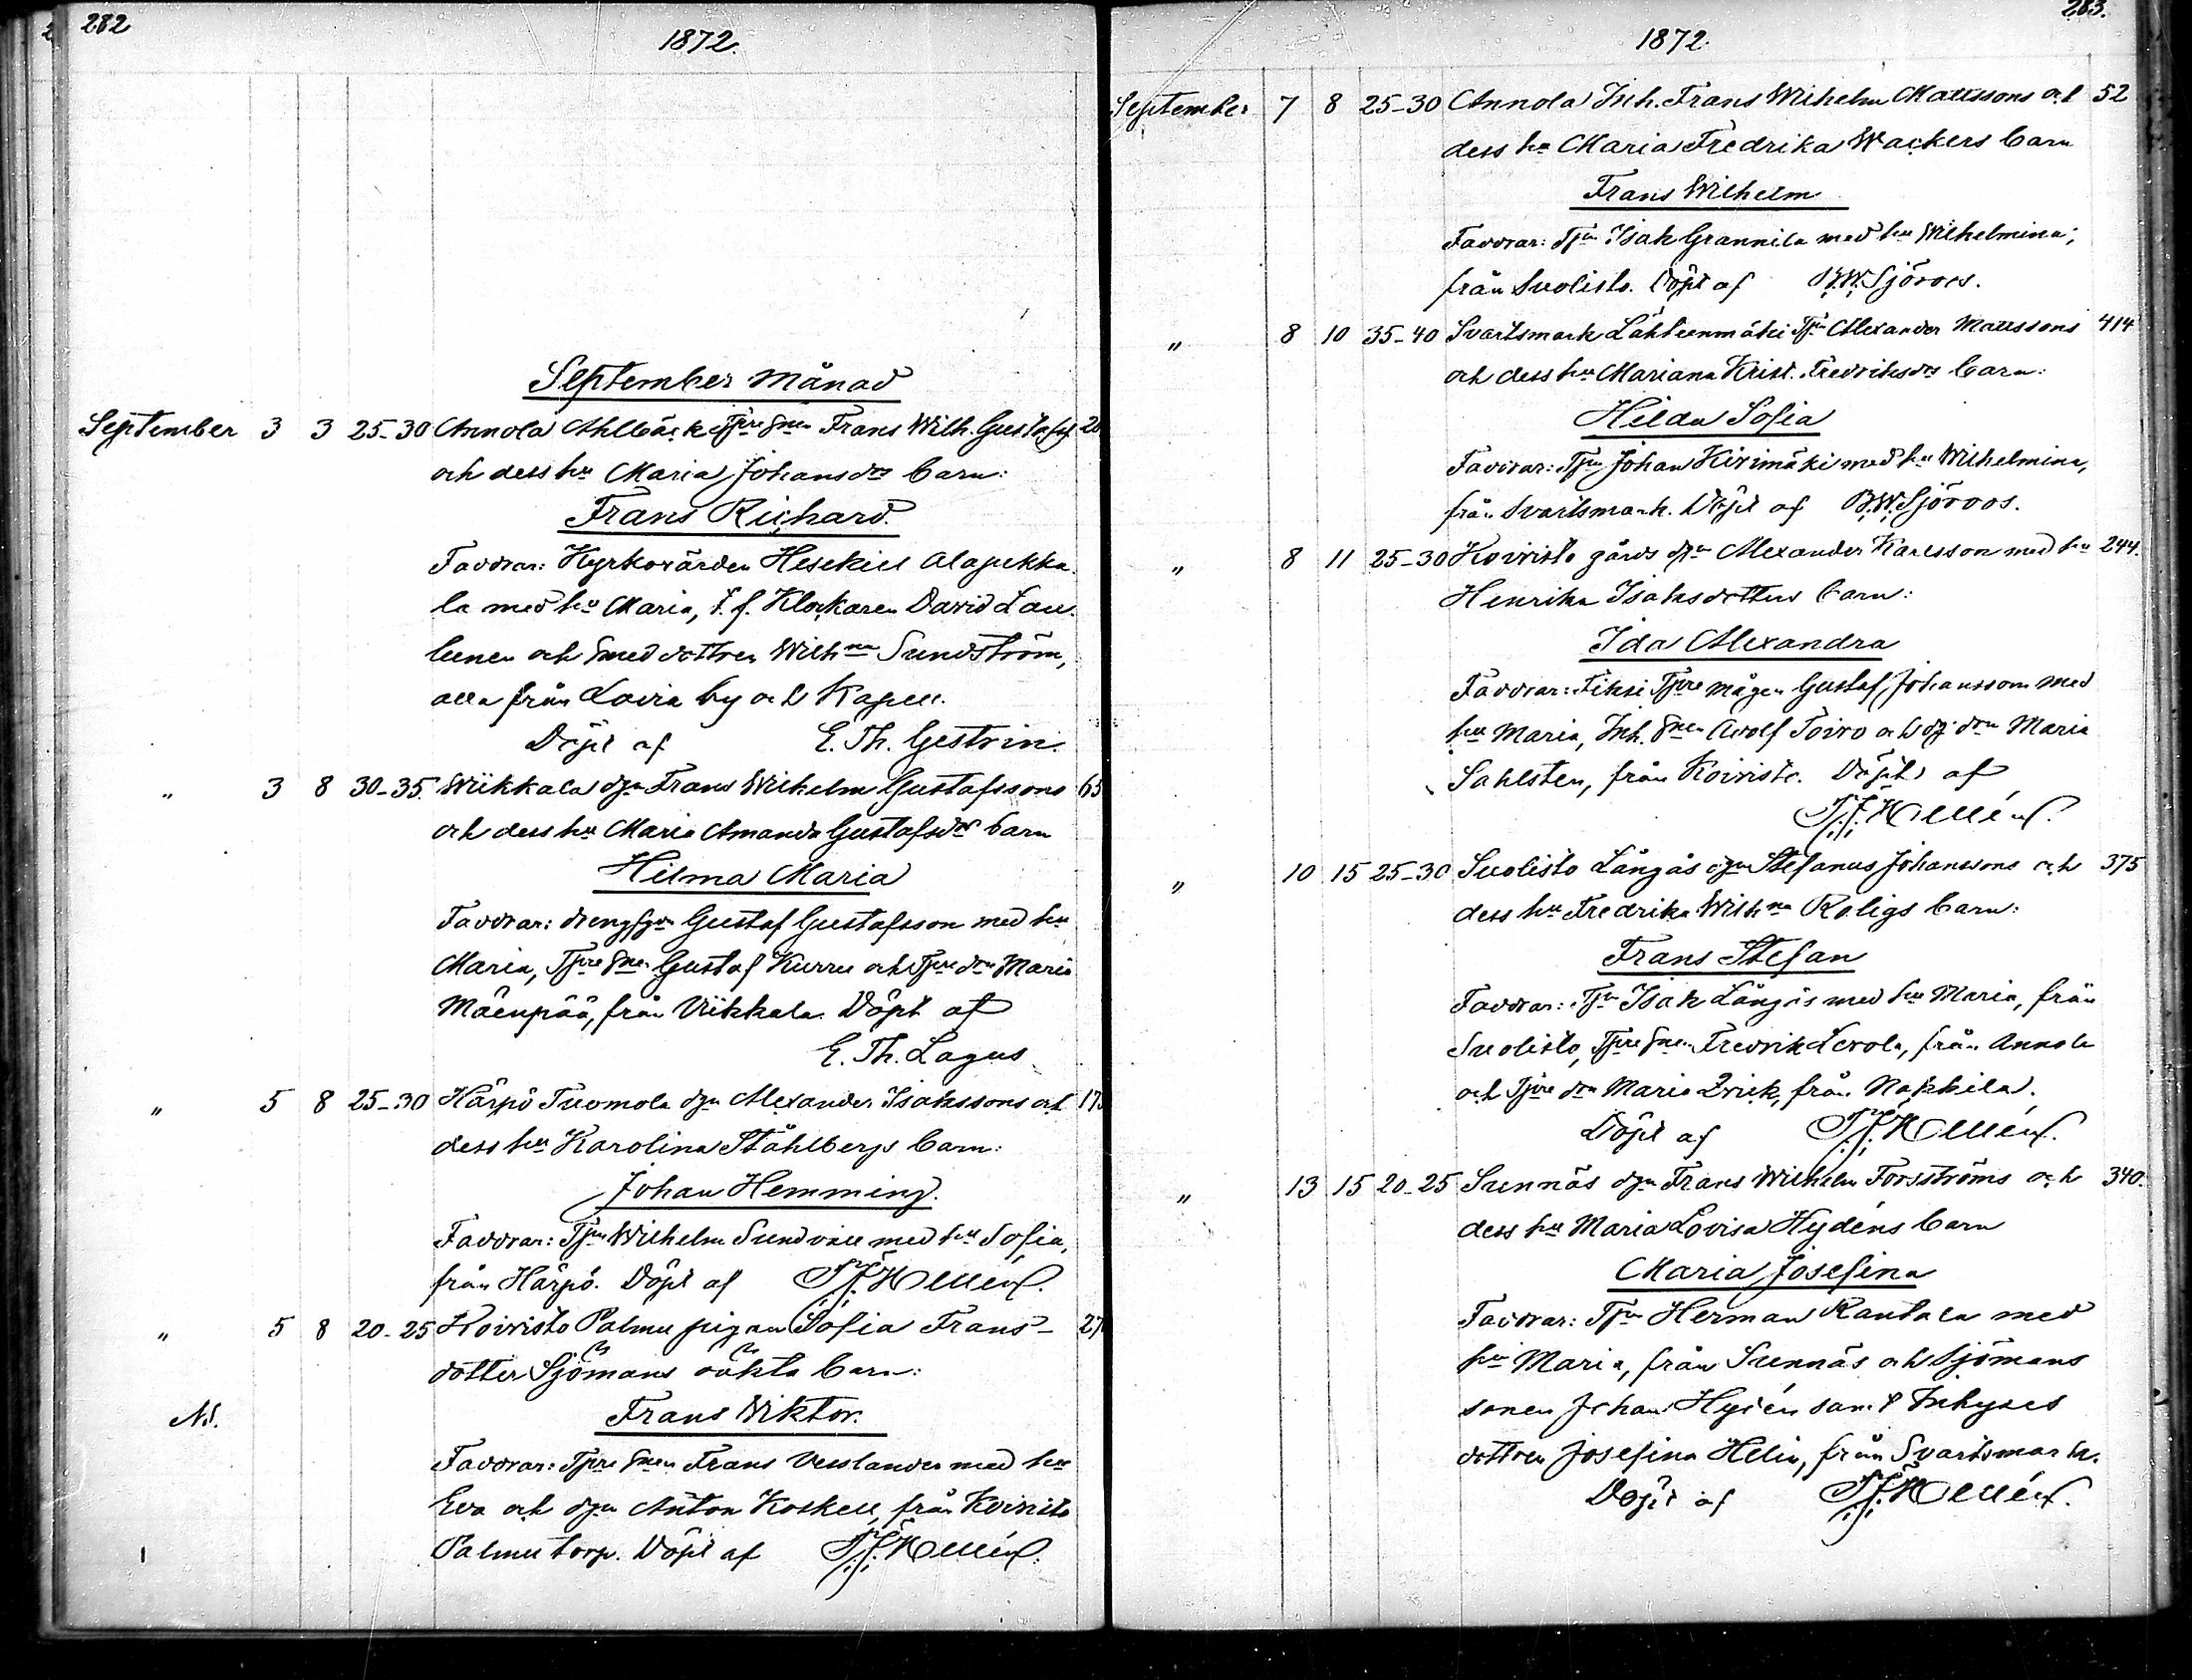 282
1872.
September Månad
September 3 3 25-30 Annola Ahlbäck Tpre Snen Frans Wilh. Gustafss 20
och dess hu Maria Johansdrs barn:
Frans Richard.
Faddrar: Kyrkovärden Hesekiel Alapekka-
la med hu Maria, t. f. Klockaren David Lau-
lunen och Smed dottren Wilhna Sundström,
alla från Lavia by och Kapell.
Döpt af E. Th. Gestrin.
" 3 8 30-35. Wiikkala dgn Frans Wilhelm Gustafssons 65
och dess hu Maria Amanda Gustafsdrs barn
Hilma Maria
Faddrar: drengfgn Gustaf Gustafsson med hu
Maria, Tpre Snen Gustaf Kurru och Tpre drn Maria
Mäenpää, från Viikkala. Döpt af
E. Th. Lagus
" 5 8 25-30 Härpö Tuomola dgn Alexander Isakssons och 17
dess hu Karolina Ståhlbergs barn:
Johan Hemming.
Faddrar: Tpn Wilhelm Sundvall med hu Sofia,
från Härpö. Döpt af F. F. Hellén.
" 5 8 20-25 Koivisto Palmu pigan Sofia Frans-
27
dotter Sjömans oäkta barn:
Nd. Frans Wiktor.
Faddrar: Tpre Snen Frans Vesslander med hu
Eva och dgn Anton Koskell, från Koivisto
Palmu torp. Döpt af F. F. Hellén.
283.
1872.
September 7 8 25-30 Annola Inh. Frans Wilhelm Mattssons och 52
dess hu Maria Fredrika Wackers barn
Frans Wilhelm
Faddrar: Tpn Isak Grannila med hu Wilhelmina,
från Suolisto. Döpt af B. W. Sjöroos.
" 8 10 35-40 Svartsmark Lähteenmäki Tpn Alexander Mattssons 414
och dess hu Mariana Krist. Fredriksdrs barn:
Hilda Sofia
Faddrar: Tpn Johan Kivimäki med hu Wilhelmina,
från Svartsmark. Döpt af B. W. Sjöroos.
" 8 11 25-30 Koivisto gårds dgn Alexander Karlsson med hu 244.
Henrika Isaksdotters barn:
Ida Alexandra
Faddrar: Fiksi Tpre mågen Gustaf Johansson med
hu Maria, Inh. Snen Adolf Toivo och dg. drn Maria
Sahlsten, från Koivisto. Döpt af
F. F. Hellén.
" 10 15 25-30 Suolisto Långås dgn Stefanus Johanssons och 375
dess hu Fredrika Wilhna Roligs barn:
Frans Stefan
Faddrar: Tpn Isak Långås med hu Maria, från
Suolisto, Tpre Snen Fredrik Levola, från Annola
och Tpre drn Maria Qvick, från Nakkila.
Döpt af F. F. Hellén.
" 13 15 20-25 Sunnäs dgn Frans Wilhelm Forsströms och 340.
dess hu Maria Lovisa Hydéns barn
Maria Josefina
Faddrar: Tpn Herman Rantala med
hu Maria, från Sunnäs och Sjömans
sonen Johan Hydén samt Inhyses
dottren Josefina Helin, från Svartsmark.
Döpt af F. F. Hellén.